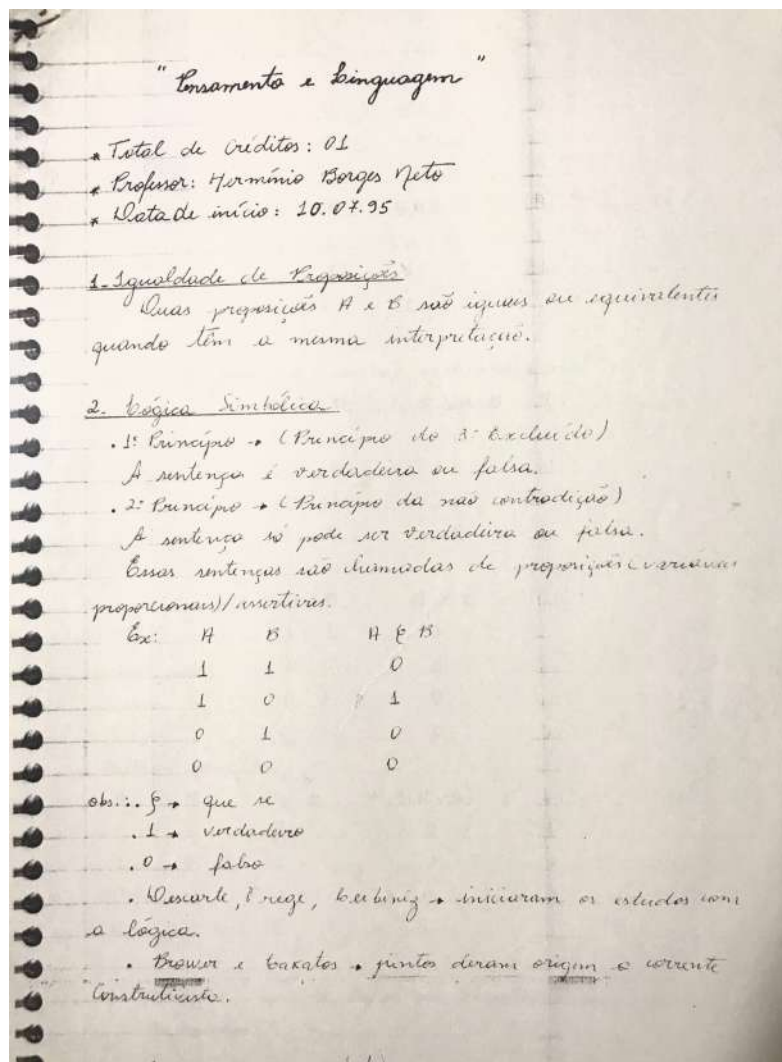 "Pensamento e Linguagem"
* Total de créditos: 01
* Professor: Hermínio Borges Neto
* Data de início: 10.07.95
1- Igualdade de Proposições
Duas proposições A e B são iguais ou equivalentes
quando têm a mesma interpretação.
2. Lógica Simbólica
. 1º Princípio → (Princípio do 3º Excluído)
A sentença é verdadeira ou falsa.
. 2º Princípio → (Princípio da não contradição)
A sentença só pode ser verdadeira ou falsa.
Essas sentenças são chamadas de proposições (variáveis
proporcionais)/assertivas.
Ex: A B A ξ B
1 1 0
1 0 1
0 1 0
0 0 0
obs.: . ξ → que se
. 1 → verdadeiro
. 0 → falso
. Descarte, Frege, Leibiniz → iniciaram os estudos com
a lógica.
. Brower e Lakatos → juntos deram origem a corrente
Construtivista.